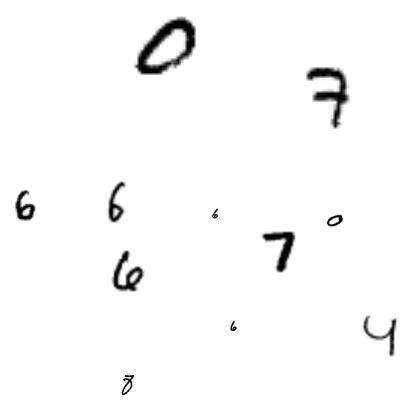 0
7
6 6 6 0
7
6
6 4
8